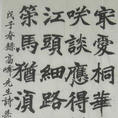 家愛桐華
咲談應得
江頭細路
策馬猶須
戊子春錄高峰先生詩